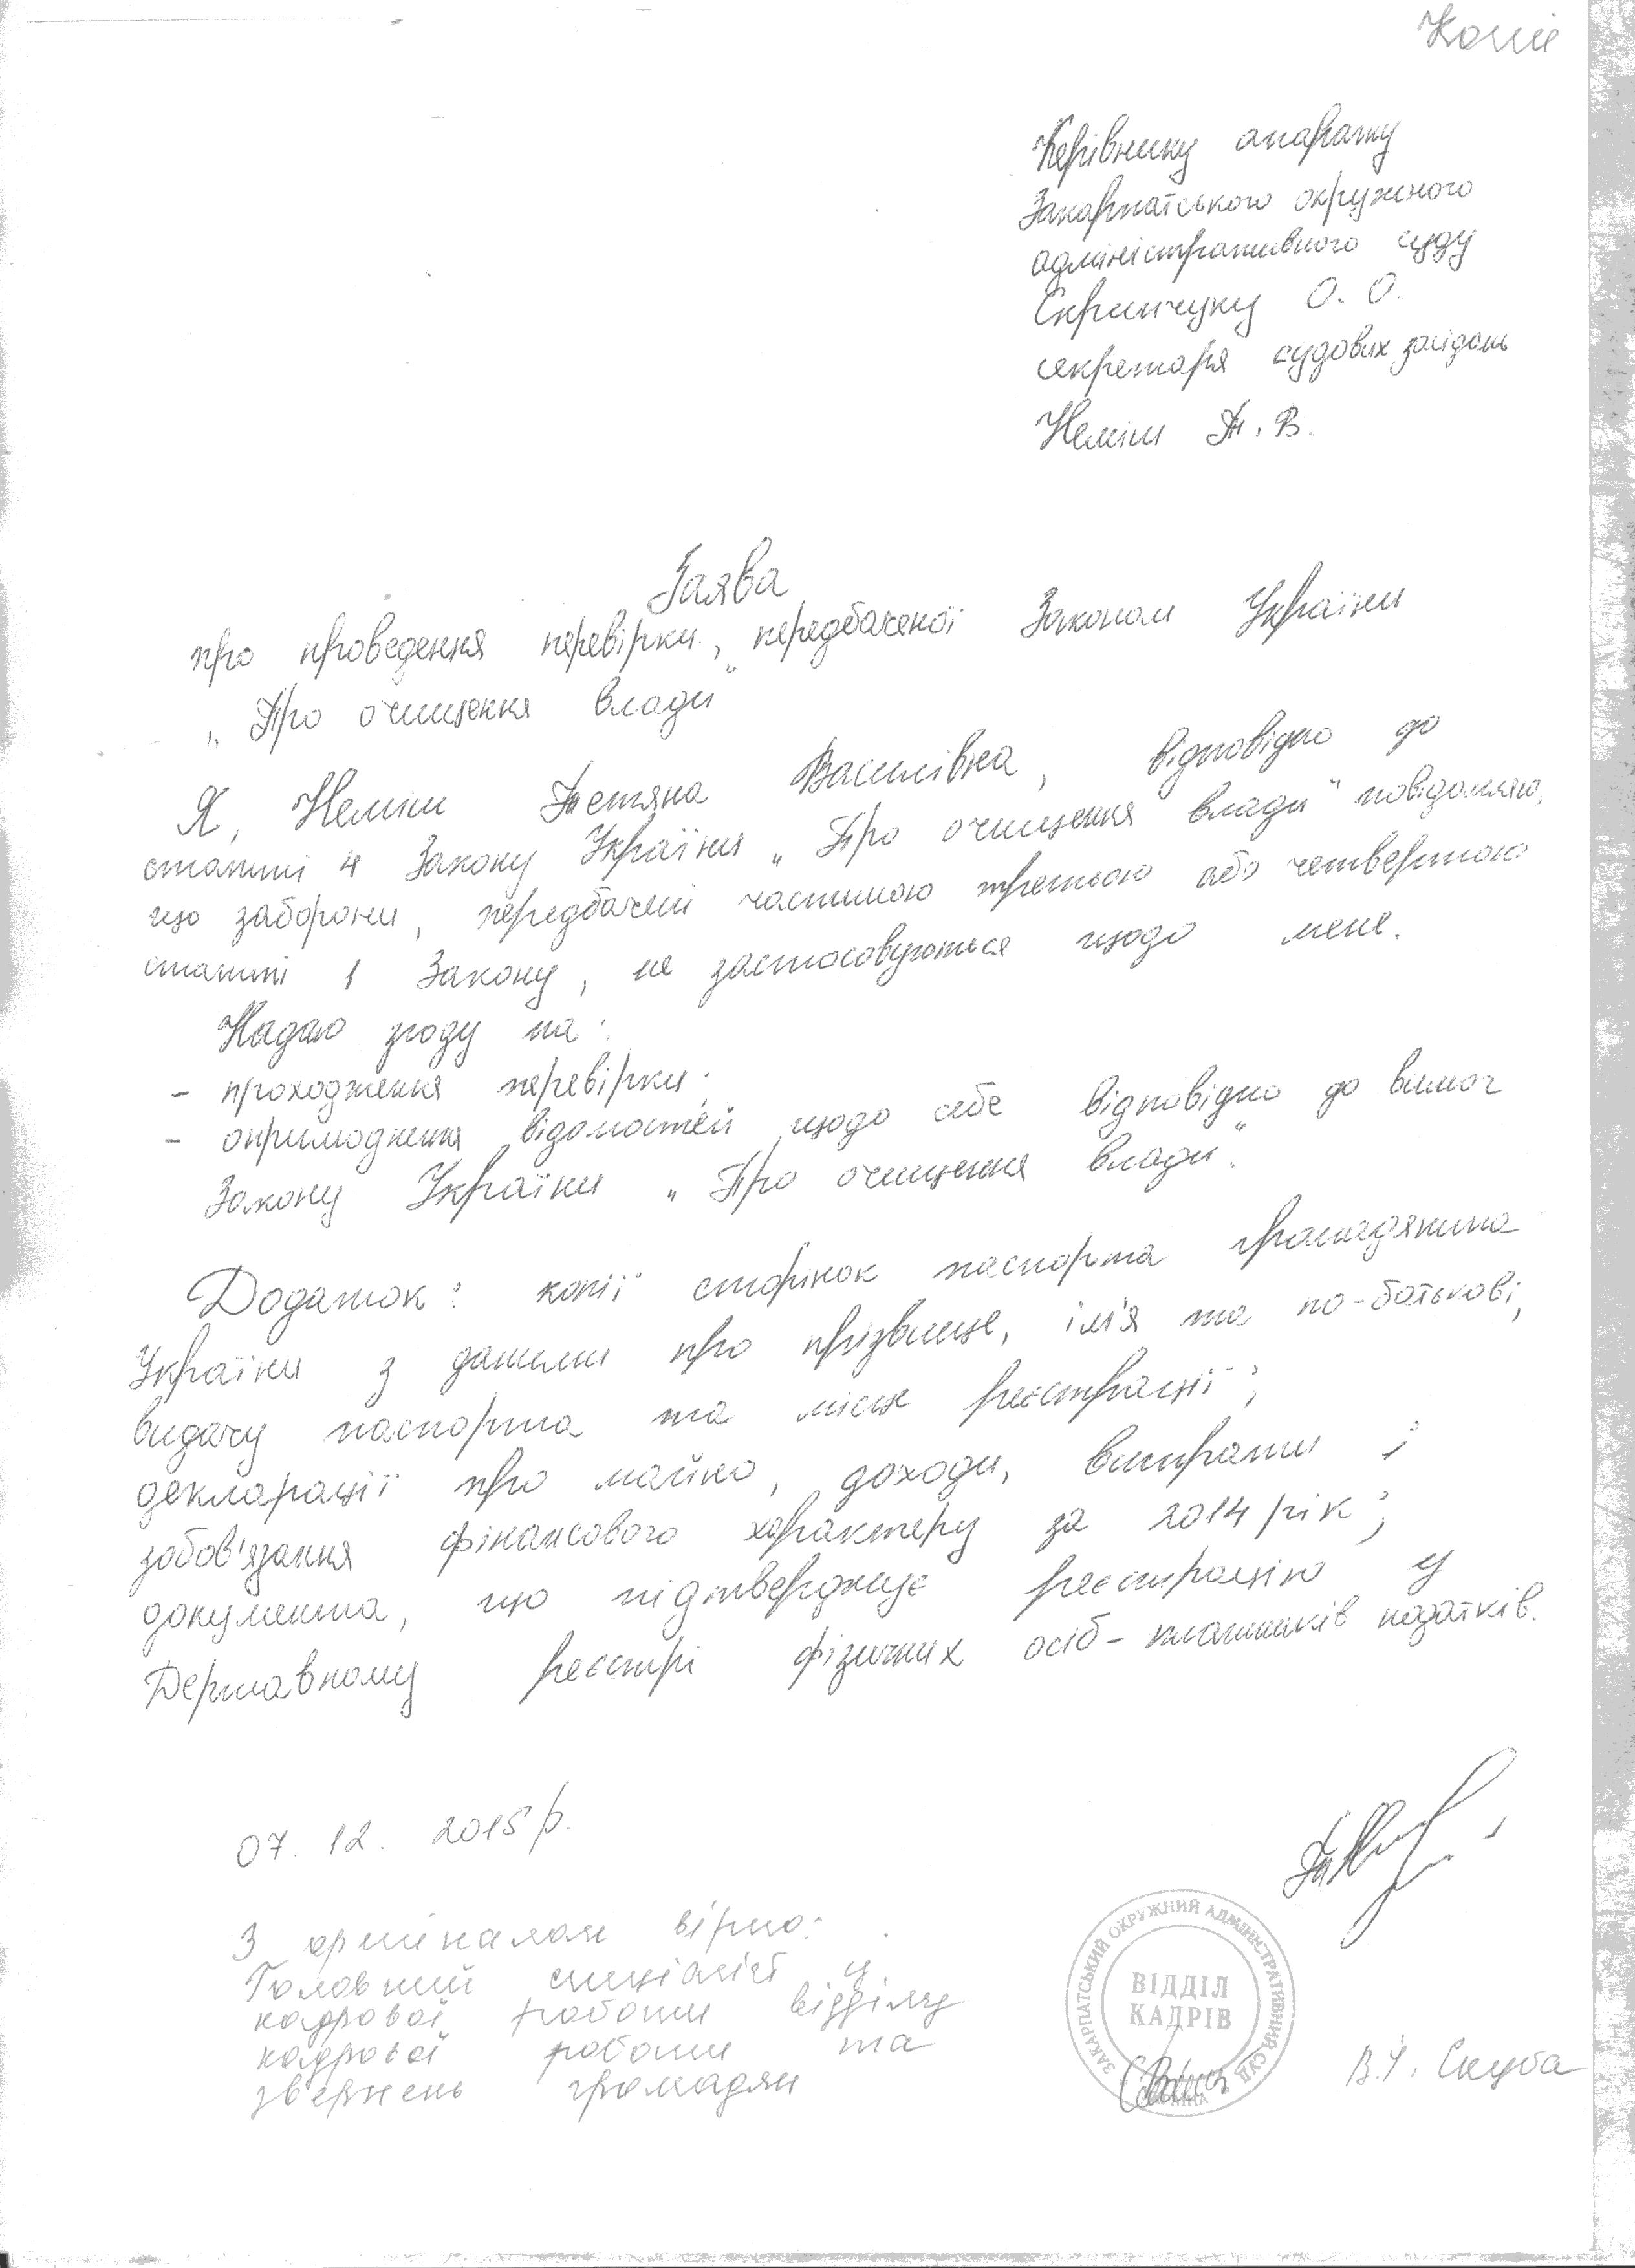 Копія
Керівнику апарату
Закарпатського окружного
адміністративного суду
Скрипчуку О. О.
секретаря судових засідань
Неміш Т. В.
Заява
про проведення перевірки, передбаченої Законом України
„Про очищення влади"
Я, Неміш Тетяна Василівна, відповідно до
статті 4 Закону України „Про очищення влади" повідомляю,
що заборони, передбачені частиною третьою або четвертою
статті 1 Закону, не застосовуються щодо мене.
Надаю згоду на:
- проходження перевірки;
- оприлюднення відомостей щодо себе відповідно до вимог
Закону України „Про очищення влади".
Додаток: копії сторінок паспорта громадянина
України з даними про прізвище, ім'я та по-батькові,
видачу паспорта та місце реєстрації;
декларації про майно, доходи, витрати і
зобов'язання фінансового характеру за 2014 рік;
документа, що підтверджує реєстрацію у
Державному реєстрі фізичних осіб - платників податків.
07. 12. 2015 р.
З оригіналом вірно:
Головний спеціаліст з
кадрової роботи відділу
кадрової роботи та
звернень громадян
ЗАКАРПАТСЬКИЙ ОКРУЖНИЙ АДМІНІСТРАТИВНИЙ СУД
ВІДДІЛ
КАДРІВ
УКРАЇНА
В.І. Скуба